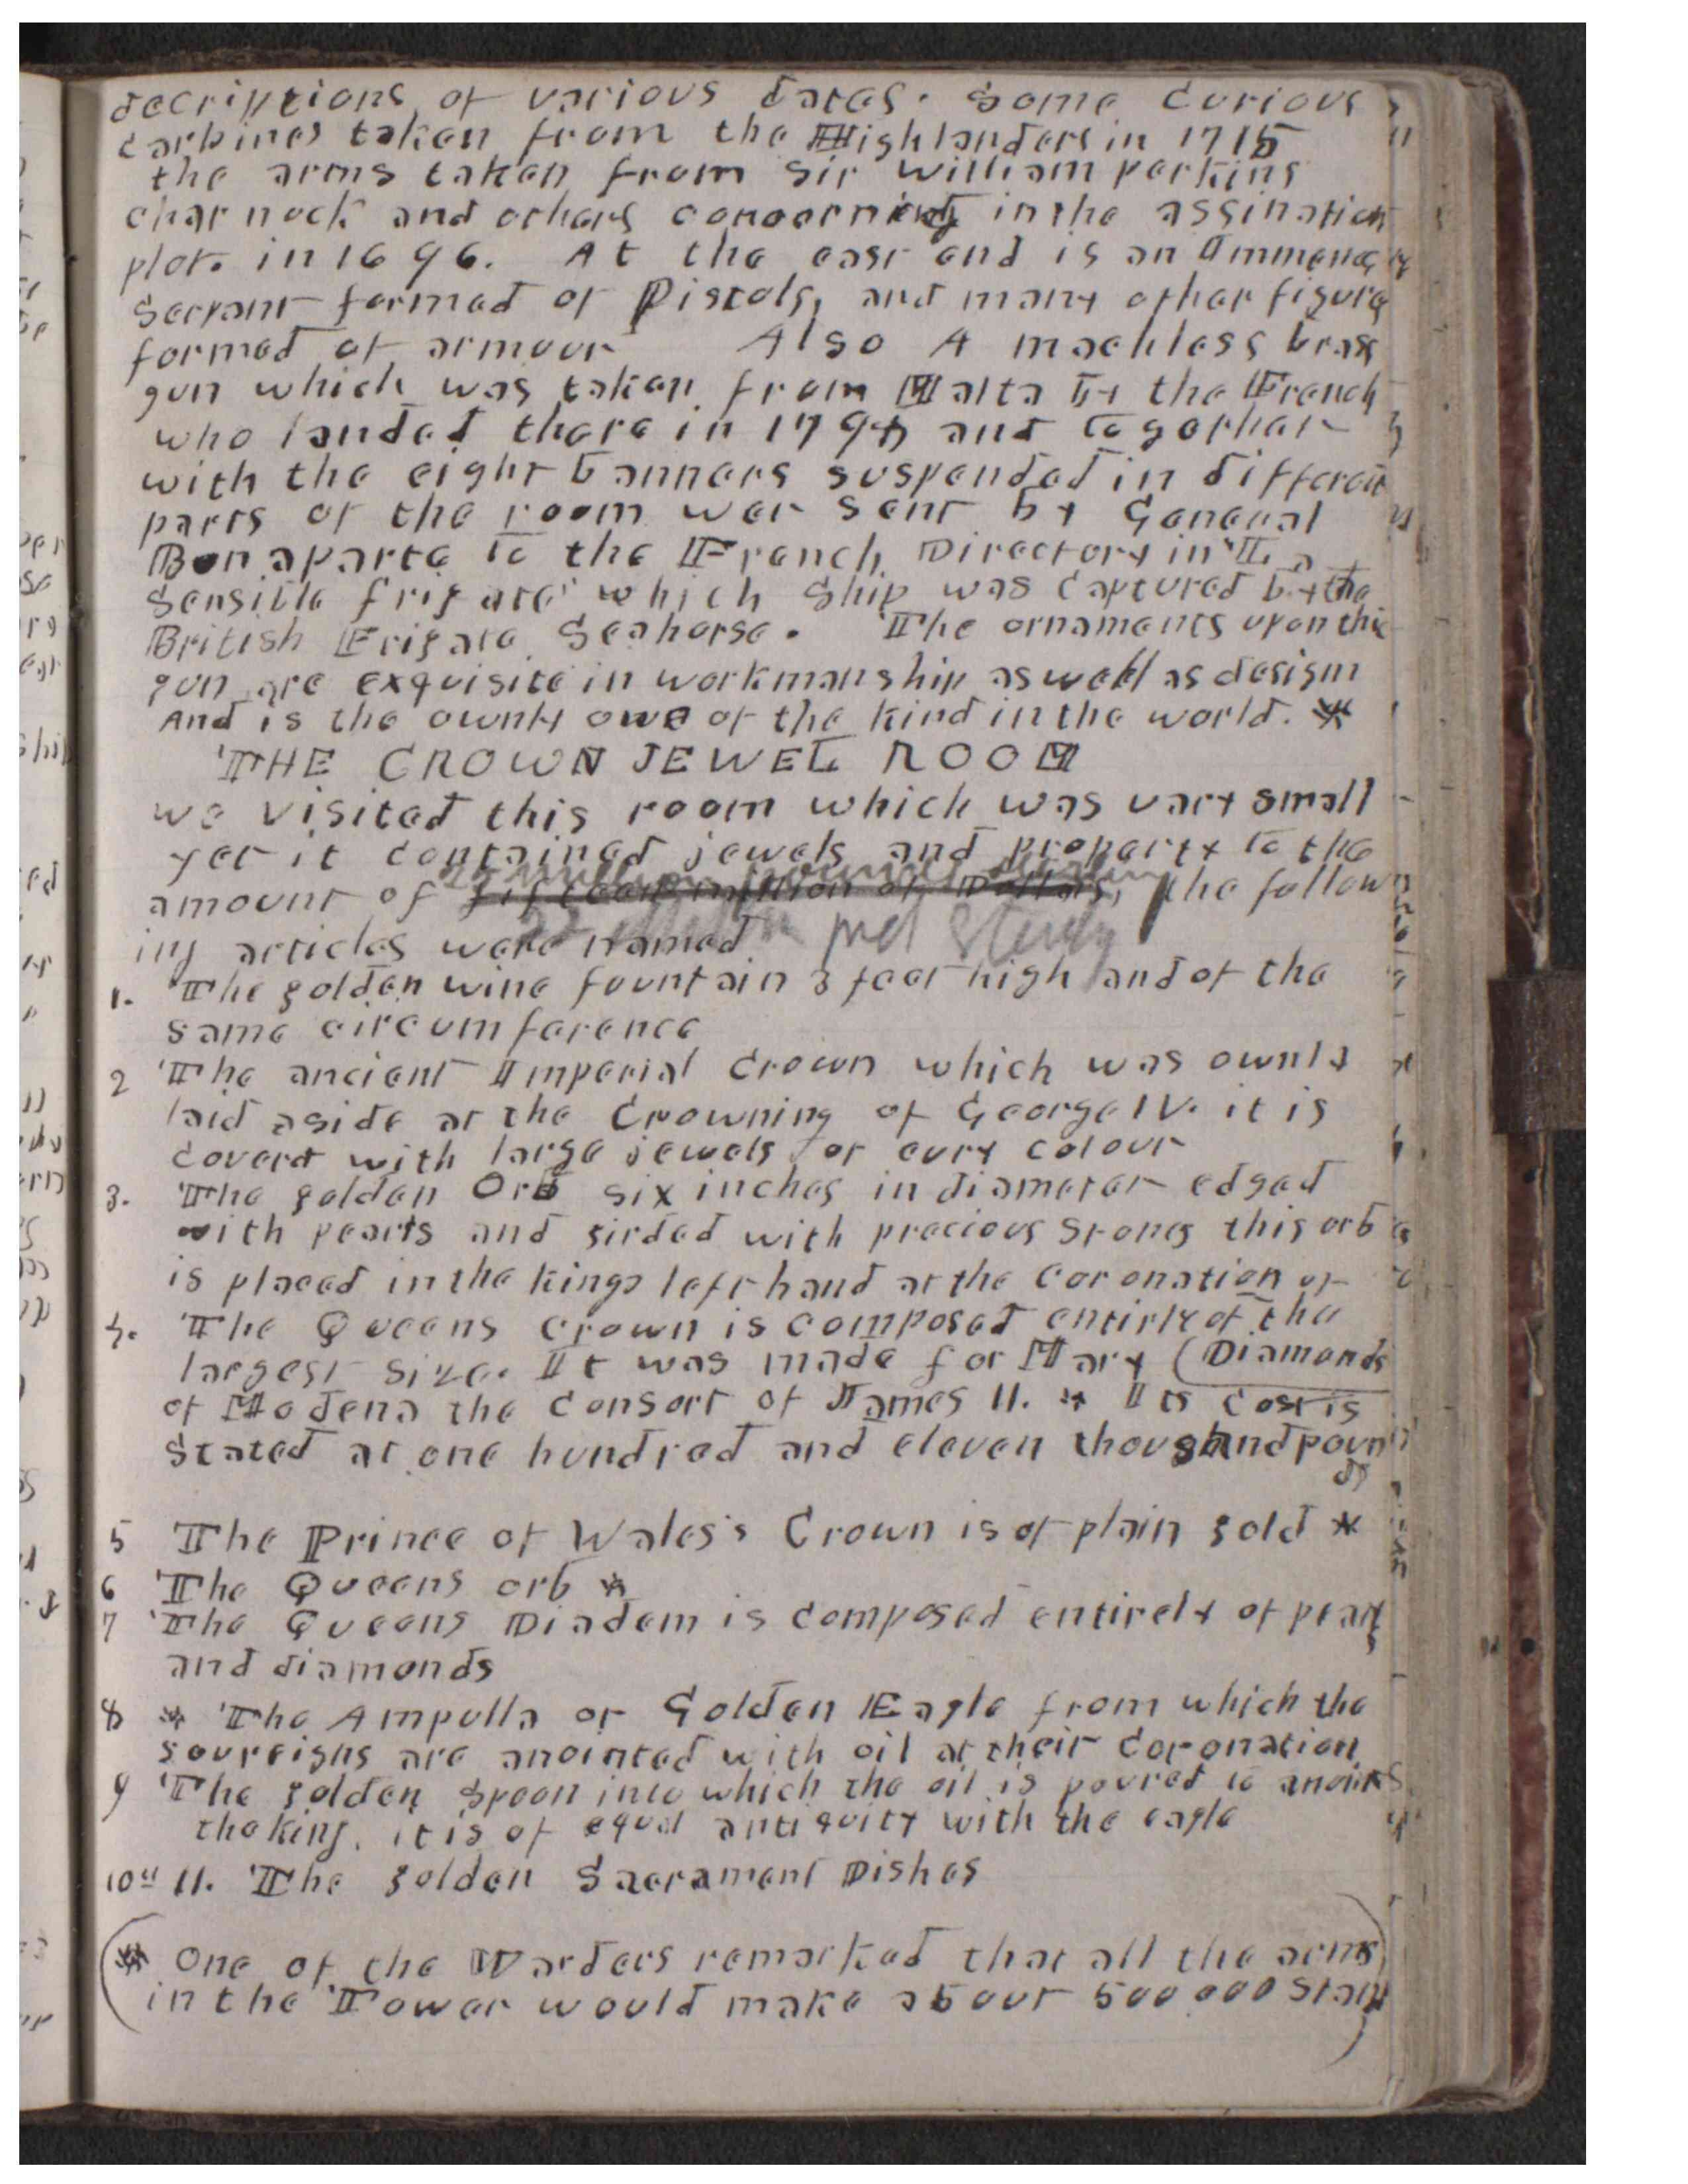 decriptions of various dates. Some curious
carbines taken from the Highlanders in 1715
the arms taken from Sir William perkins
charnock and others concerning in the assination
plot. in 1696. At the east end is an Immence
Serpant formed of Pistols, and many other figure
formed of armour Also A machless brass
gun which was taken from Malta by the French
who landed there in 1798 and togerher
with the eight banners suspended in different
parts of the room wer sent by General
Bonaparte to the French Directory in "La
Sensible frigate" which Ship was captured by the
British Frigate Seahorse. The ornaments upon this
gun are exquisite in workmanship as well as design
And is the ownly one of the kind in the world. *
THE CROWN JEWEL ROOM
we visited this room which was vary small
yet it contained jewels and property to the
amount of fifteen million of Dollars, the follow
ing articles were named
1. The golden wine fountain 3 feet high and of the
same circumfarence
2 The ancient Imperial Crown which was ownly
laid aside at the Crowning of George IV. it is
coverd with large jewels of evry colour
3. The golden Orb six inches in diameter edged
with pearls and girded with precious Stones this orb
is placed in the kings left hand at the coronation of
4. The Queens crown is composed entirly of the
largest size. It was made for Mary (Diamonds
of Modena the consort of James II. * Its cost is
Stated at one hundred and eleven thousand poun
ds
5 The Prince of Wales's Crown is of plain gold *
6 The Queens orb *
7 The Queens Diadem is composed entirely of pearls
and diamonds
8 * The Ampulla or Golden Eagle from which the
sovreigns are anointed with oil at their coronation
9 The golden spoon into which the oil is poured to anoint
the king. it is of equal antiquity with the eagle
10" 11. The golden Sacrament Dishes
(* One of the Warders remarked that all the arms
in the Tower would make about 500000 Stand)